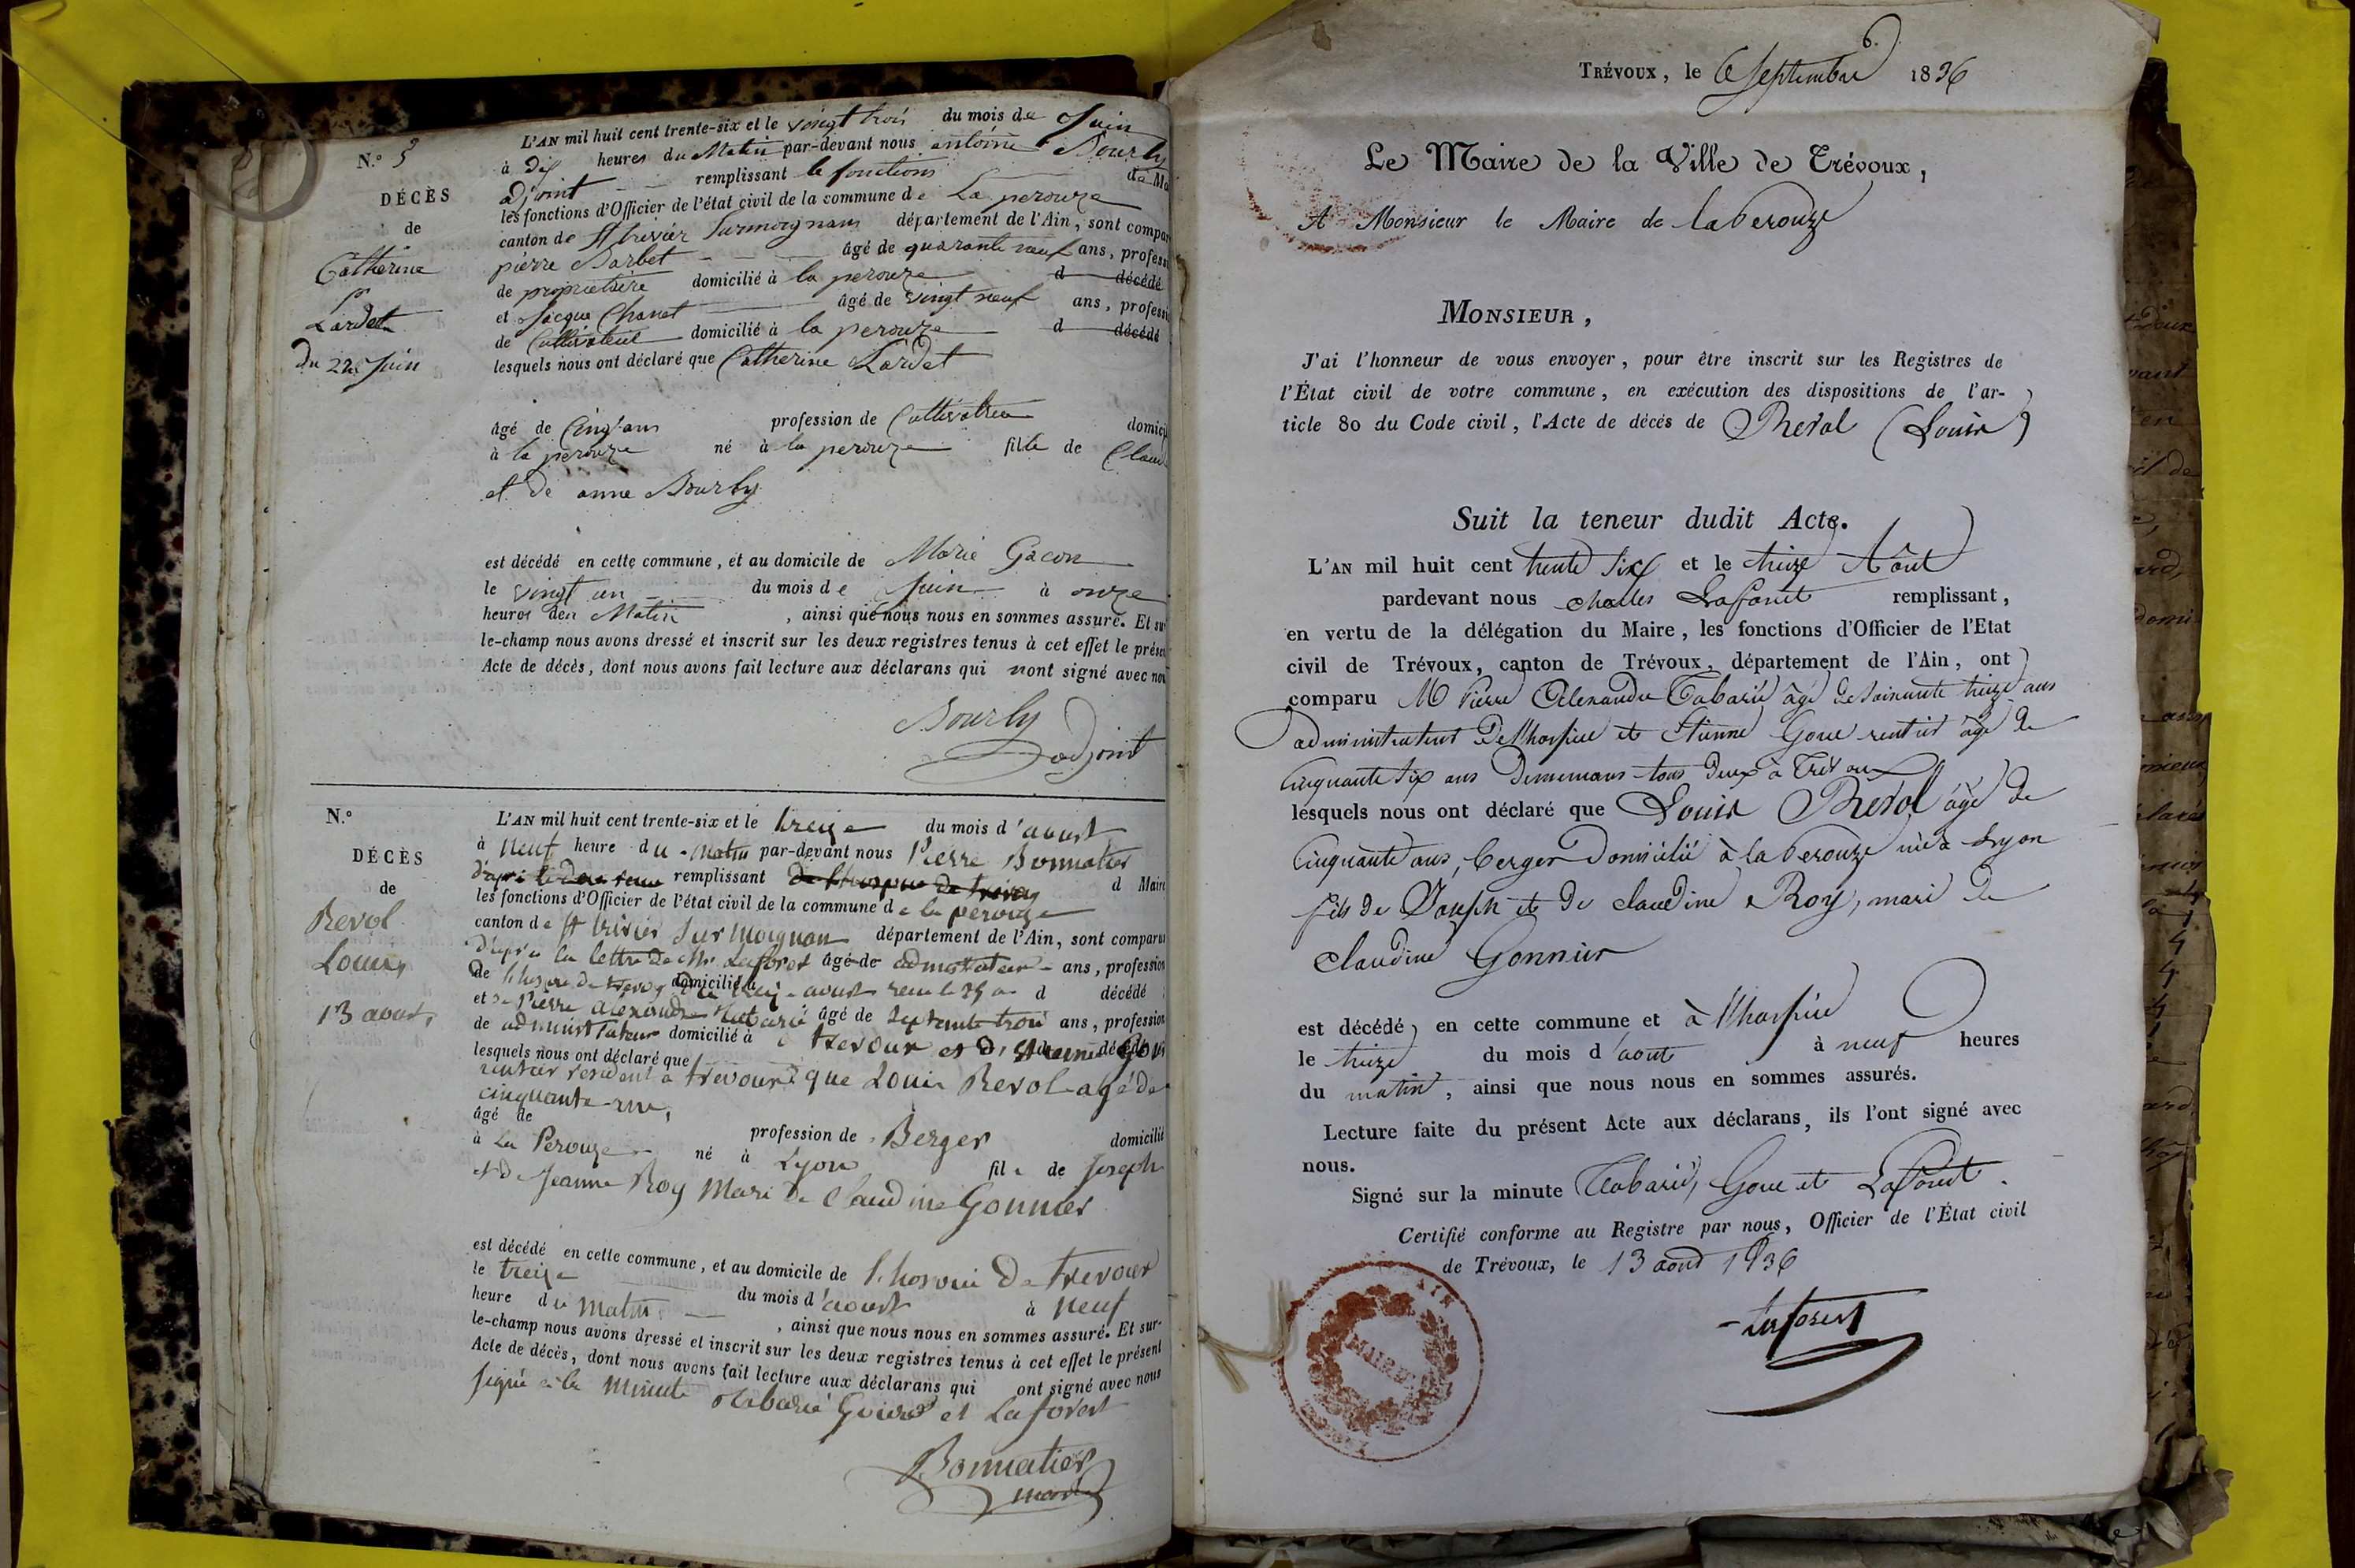 N.° 3
DÉCÈS
de
Catherine
Lardet
du 22 Juin
L'AN mil huit cent trente-six et le vingt trois du mois de Juin
à dix heures du Matin par-devant nous antoine Bourly
adjoint remplissant le fonctions de Ma
les fonctions d'Officier de l'état civil de la commune de La perouze
canton de St trivier Surmoignans département de l'Ain, sont compar
pierre Barbet âgé de quarante neuf ans, profess
de propriétaire domicilié à la perouze d décédé
et Jacque Chanet âgé de vingt neuf ans, professi
de Cultivateur domicilié à la perouze d décédé
lesquels nous ont déclaré que Catherine Lardet
âgé de Cinq ans profession de Cultivatrice domici
à la perouze né à la perouze fille de Claud
et de anne Bourly
est décédé en cette commune, et au domicile de Marie Gacon
le vingt un du mois de Juin à onze
heures du Matin, ainsi que nous nous en sommes assuré. Et sur
le-champ nous avons dressé et inscrit sur les deux registres tenus à cet effet le présen
Acte de décès, dont nous avons fait lecture aux déclarans qui nont signé avec nou
Bourly
adjoint
N.°
DÉCÈS
de
Revol
Louis
13 aoust
L'AN mil huit cent trente-six et le treize du mois d'aoust
à neuf heure du matin par-devant nous Pierre Bonnatier
remplissant de l'hospice de trevoux d Maire
les fonctions d'Officier de l'état civil de la commune de la perouze
canton de St trivier Sur Moignan département de l'Ain, sont comparus
d'après la lettre de Mr Laforest âgé de admistrateur ans, profession
de l'hospice de trevoux domicilié à treize aoust d décédé
et de Pierre alexandre tabarié âgé de septante trois ans, profession
de administrateur domicilié à trevoux et d'etienne décédé Goux
lesquels nous ont déclaré que
rentier resident a trevoux que Louis Revol agé de
cinquante ans,
âgé de profession de Berger domicilié
à La Perouze né à Lyon fils de Joseph
et de Jeanne Roy Mari de Claudine Gonnier
est décédé en cette commune, et au domicile de l'hospice De trevoux
le treize du mois d'aoust à neuf
heure du matin, ainsi que nous nous en sommes assuré. Et sur-
le-champ nous avons dressé et inscrit sur les deux registres tenus à cet effet le présent
Acte de décès, dont nous avons fait lecture aux déclarans qui ont signé avec nous
signé à la minute tabarié et Laforest
Bonnatier
maire
TRÉVOUX, le 6 Septembre 1836
Le Maire de la Ville de Trévoux,
A Monsieur le Maire de la Perouze
MONSIEUR,
J'ai l'honneur de vous envoyer, pour être inscrit sur les Registres de
l'État civil de votre commune, en exécution des dispositions de l'ar-
ticle 80 du Code civil, l'Acte de décès de Revol (Louis)
Suit la teneur dudit Acte.
L'AN mil huit cent trente Six et le treize Août
pardevant nous Charles Laforest remplissant,
en vertu de la délégation du Maire, les fonctions d'Officier de l'Etat
civil de Trévoux, canton de Trévoux, département de l'Ain, ont
comparu M Pierre Alexandre Tabarié âgé de soixante treize ans
administrateur de l'hospice et Etienne Goux rentier âgé de
Cinquante Six ans Demeurans tous deux à Trévoux
lesquels nous ont déclaré que Louis Revol âgé de
Cinquante ans, berger domicilié à la Perouze né à Lyon
fils de Joseph et de Claudine Roy, mari de
Claudine Gonnier
est décédé en cette commune et à l'hospice
le treize du mois d'aoust à neuf heures
du matin, ainsi que nous nous en sommes assurés.
Lecture faite du présent Acte aux déclarans, ils l'ont signé avec
nous.
Signé sur la minute Tabarié, Goux et Laforest.
Certifié conforme au Registre par nous, Officier de l'État civil
de Trévoux, le 13 aout 1836
Laforest
MAIRIE
AIN